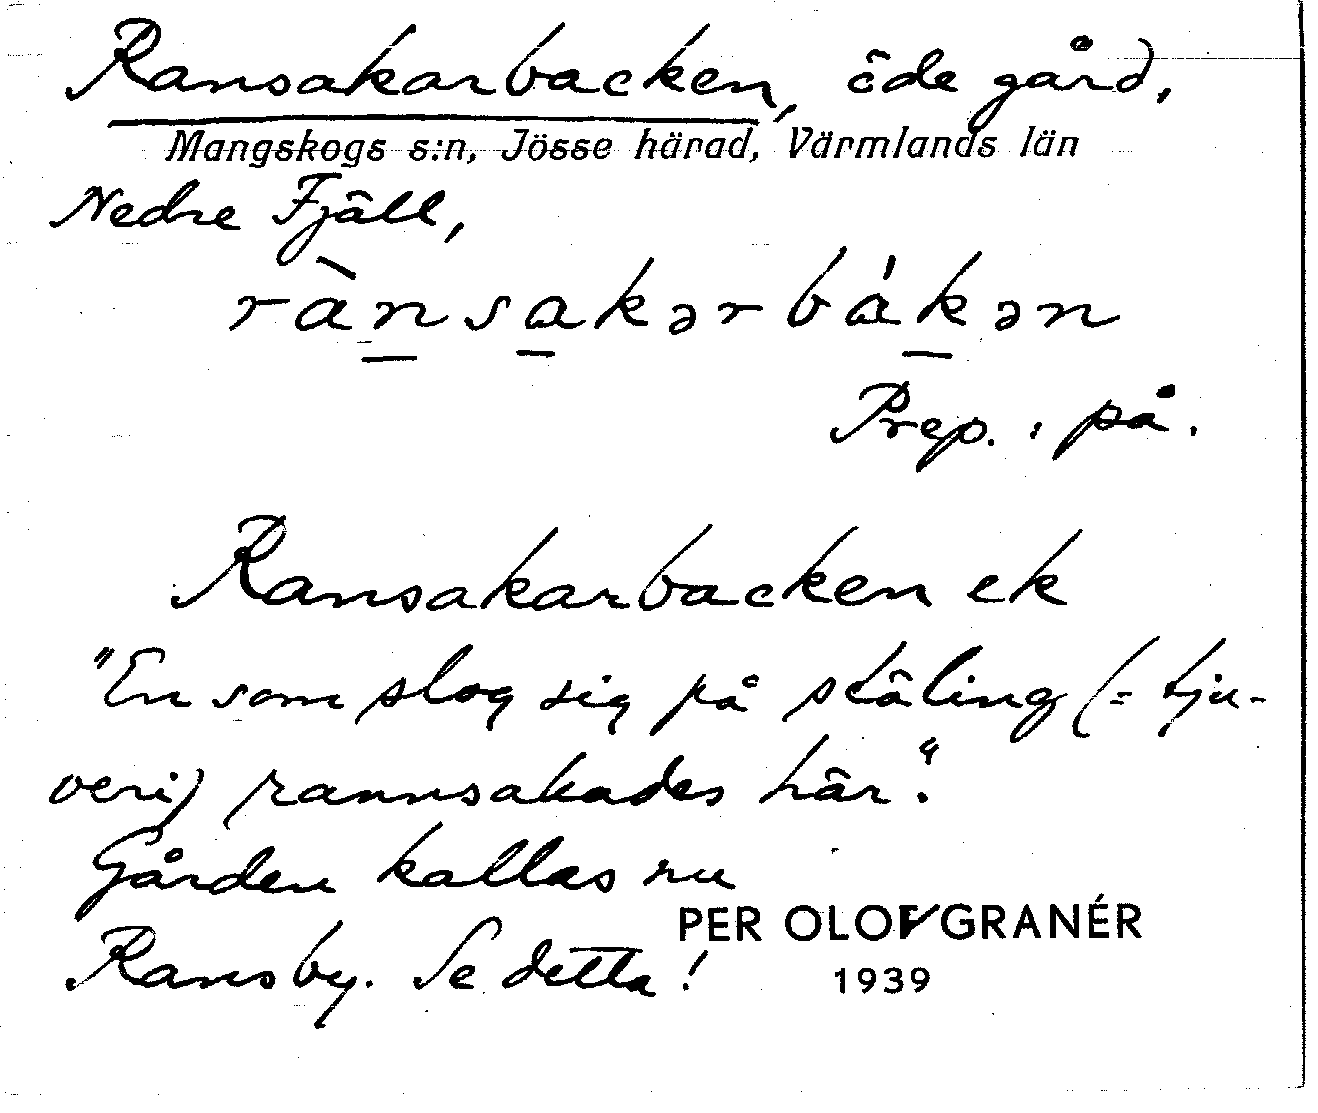 Ransakarbacken, öde gård,
Mangskogs s:n, Jösse härad, Värmlands län
Nedre Fjäll,
rànsakərbákən
Prep. : på.
Ransakarbacken ek
"En som slog sig på stäling (= tju-
veri) rannsakades här."
Gården kallas nu
Ransby. Se detta!
PER OLOF GRANÉR
1939